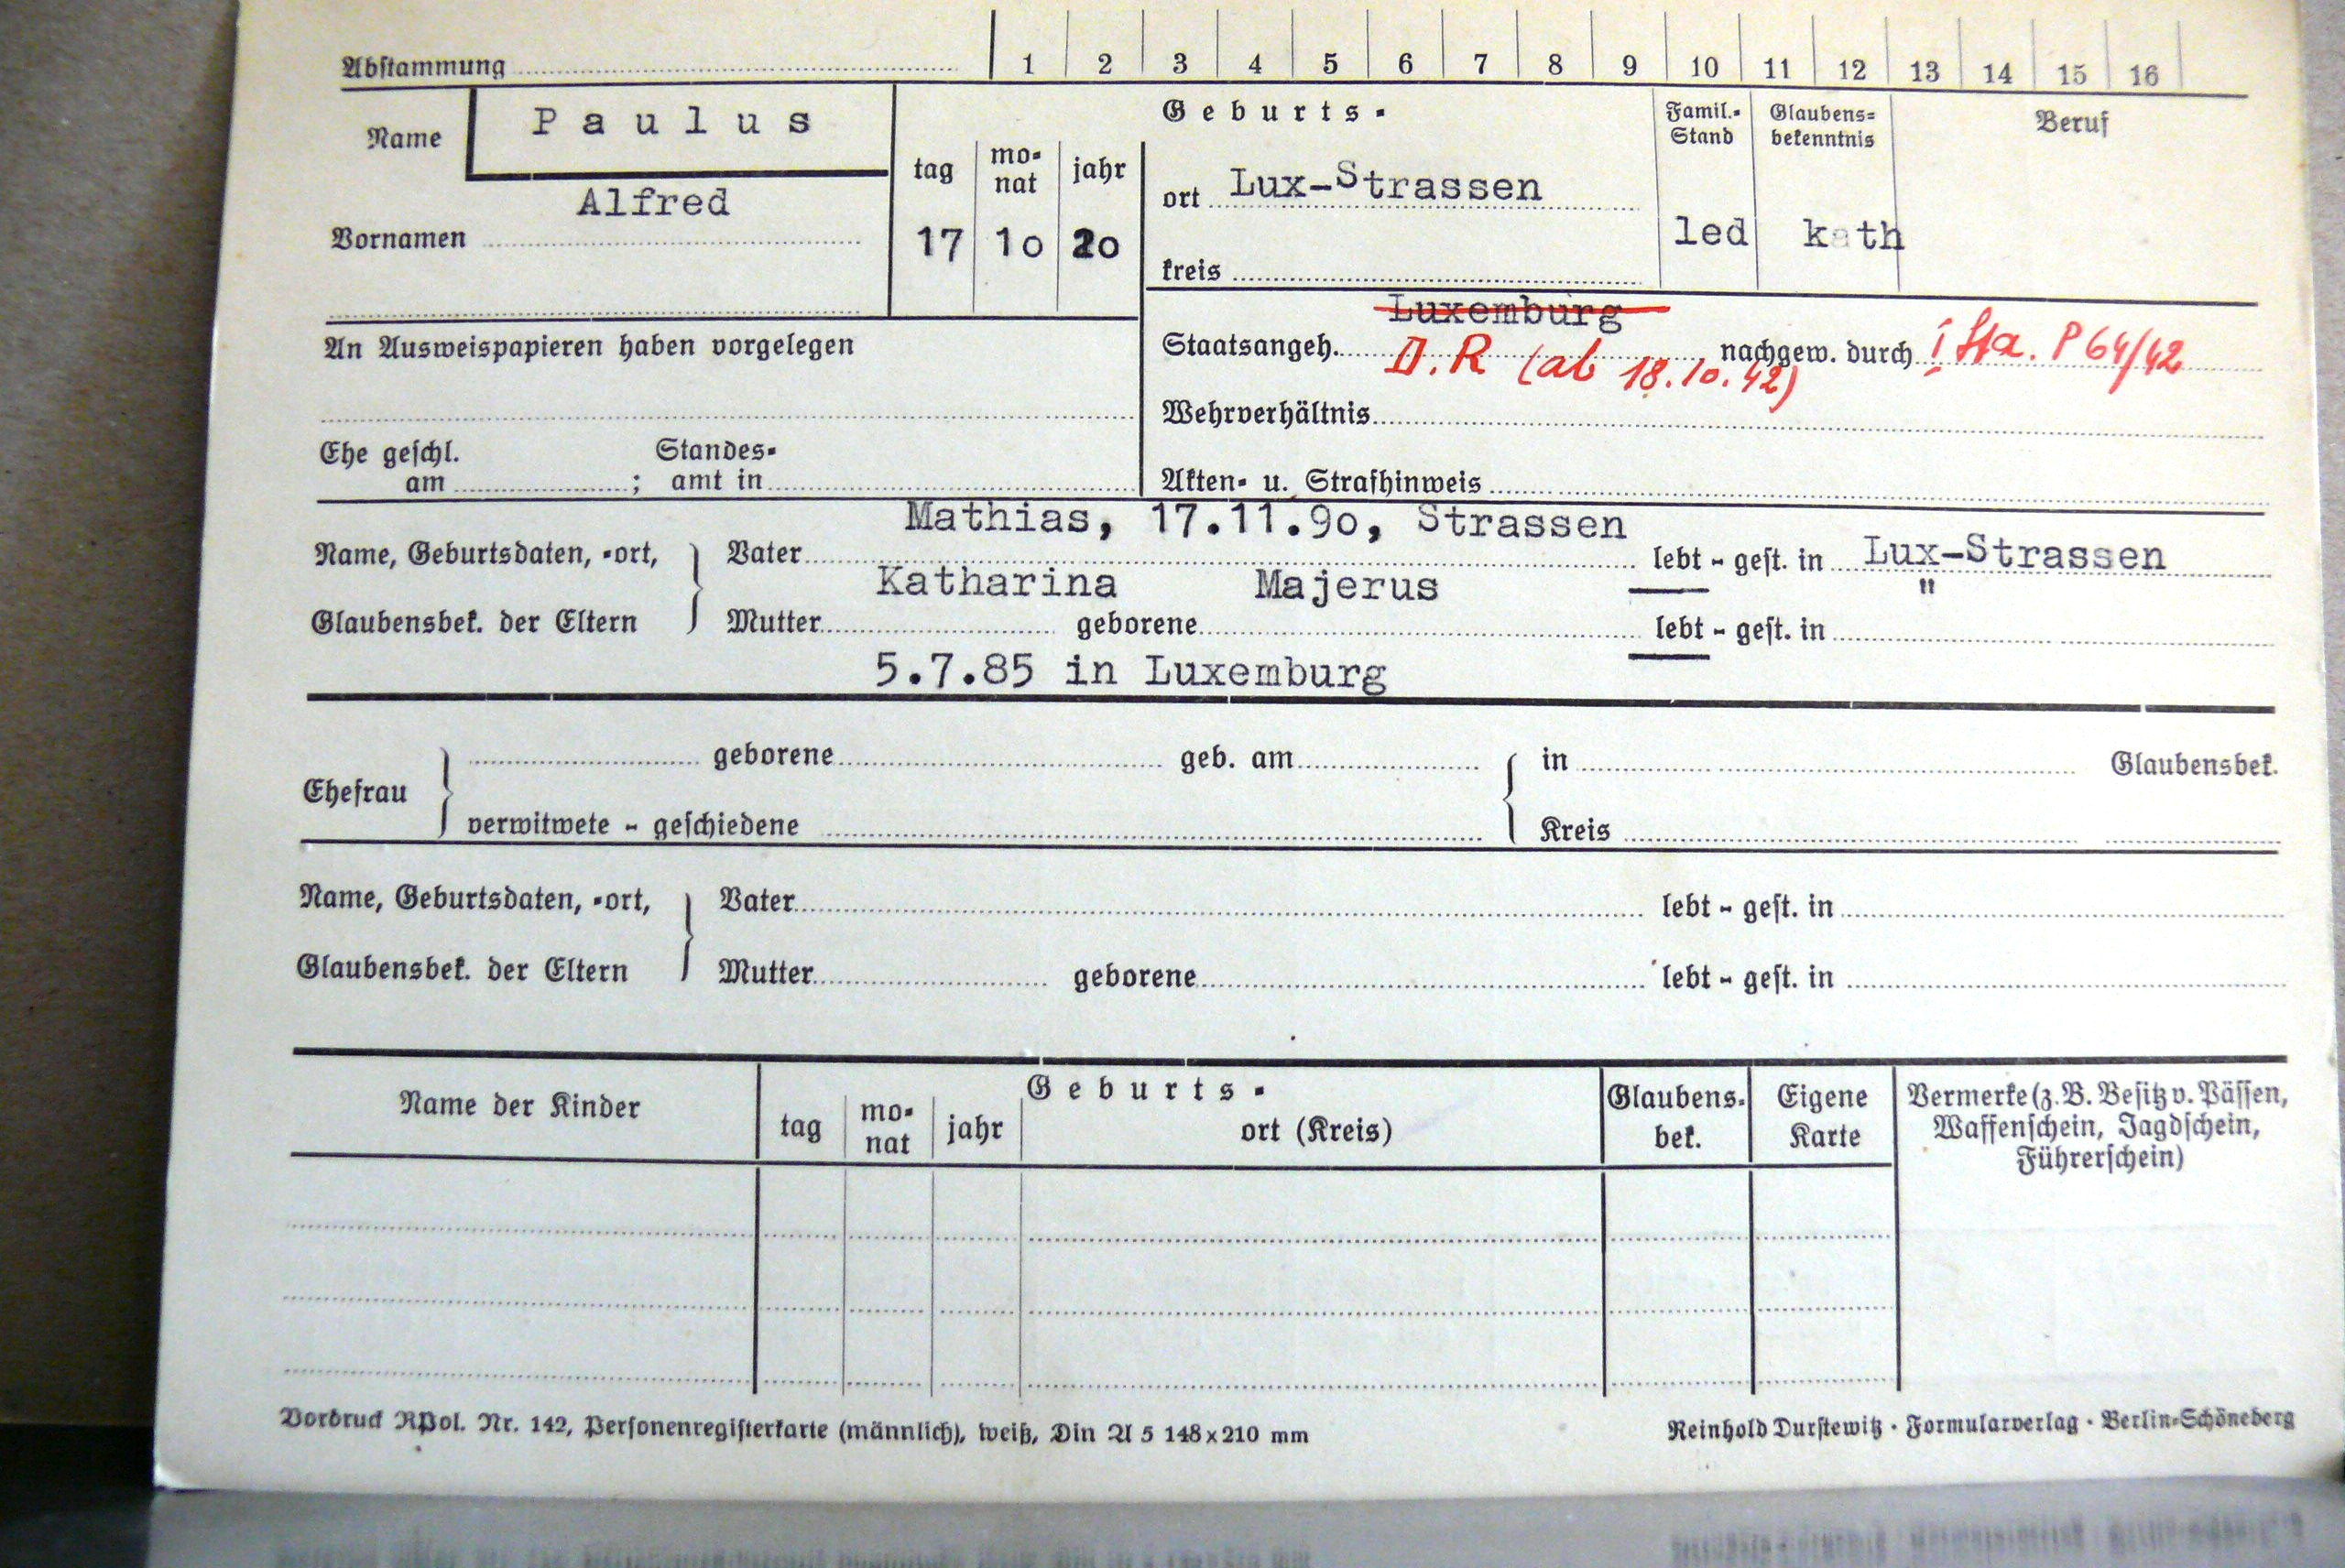 Abstammung 1 2 3 4 5 6 7 8 9 10 11 12 13 14 15 16
Name Paulus
Geburts-
Famil.-Stand
Glaubens=bekenntnis
Beruf
tag mo-nat jahr
ort Lux-Strassen
Alfred
Vornamen
17 10 20
led kath
kreis
Luxemburg
An Ausweispapieren haben vorgelegen
Staatsangeh. D.R (ab 18.10.42) nachgew. durch P 64/42
Wehrverhältnis
Ehe geschl. am ; Standes-amt in
Akten- u. Strafhinweis
Mathias, 17.11.90, Strassen
Name, Geburtsdaten, -ort, Vater lebt - gest. in Lux-Strassen
Katharina Majerus "
Glaubensbek. der Eltern Mutter geborene lebt - gest. in
5.7.85 in Luxemburg
geborene geb. am in Glaubensbek.
Ehefrau
verwitwete - geschiedene Kreis
Name, Geburtsdaten, -ort, Vater lebt - gest. in
Glaubensbek. der Eltern Mutter geborene lebt - gest. in
Name der Kinder
Geburts-
tag mo-nat jahr ort (Kreis)
Glaubens-bek.
Eigene Karte
Vermerke (z. B. Besitz v. Pässen,
Waffenschein, Jagdschein,
Führerschein)
Vordruck RPol. Nr. 142, Personenregisterkarte (männlich), weiß, Din A 5 148x210 mm
Reinhold Durstewitz · Formularverlag · Berlin-Schöneberg